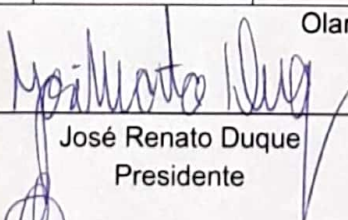 Olar
José Renato Duque
Presidente